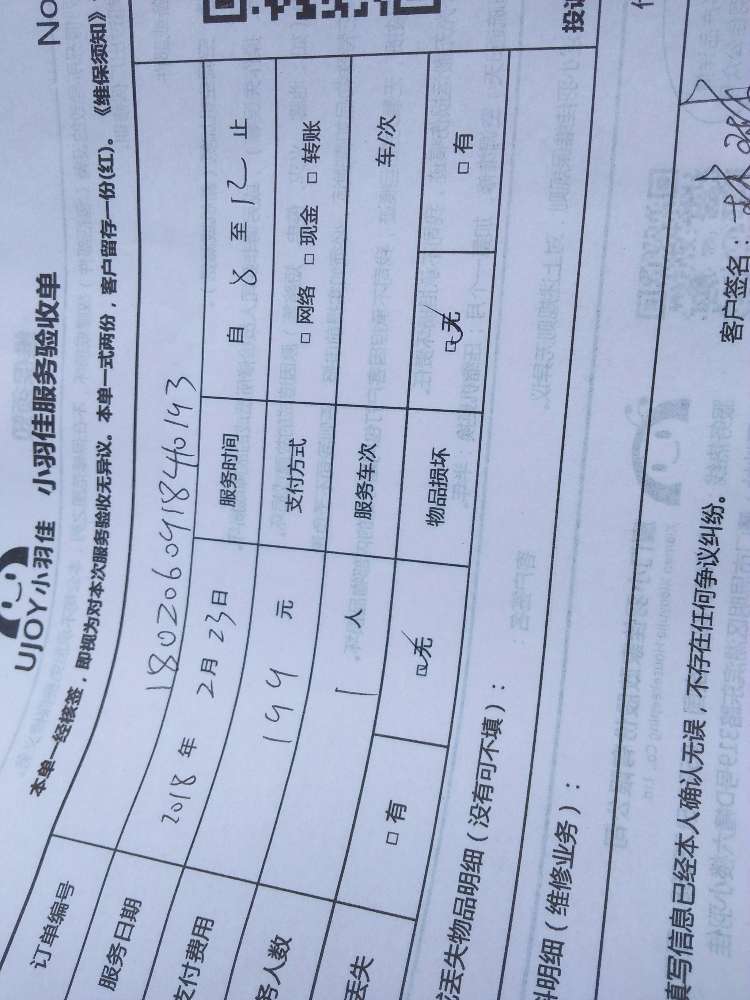 No
UJOY小羽佳 小羽佳服务验收单
本单一经核签，即视为对本次服务验收无异议。本单一式两份，客户留存一份(红)。《维保须知》
订单编号 1802060918440193
服务日期 2018 年 2 月 23 日 服务时间 自 8 至 12 止
支付费用 144 元 支付方式 □ 网络 □ 现金 □ 转账
务人数 1 人 服务车次 车/次
丢失 □ 有 □ 无 物品损坏 □ 无 □ 有
丢失物品明细（没有可不填）：
料明细（维修业务）： 投诉
填写信息已经本人确认无误，不存在任何争议纠纷。 客户签名：